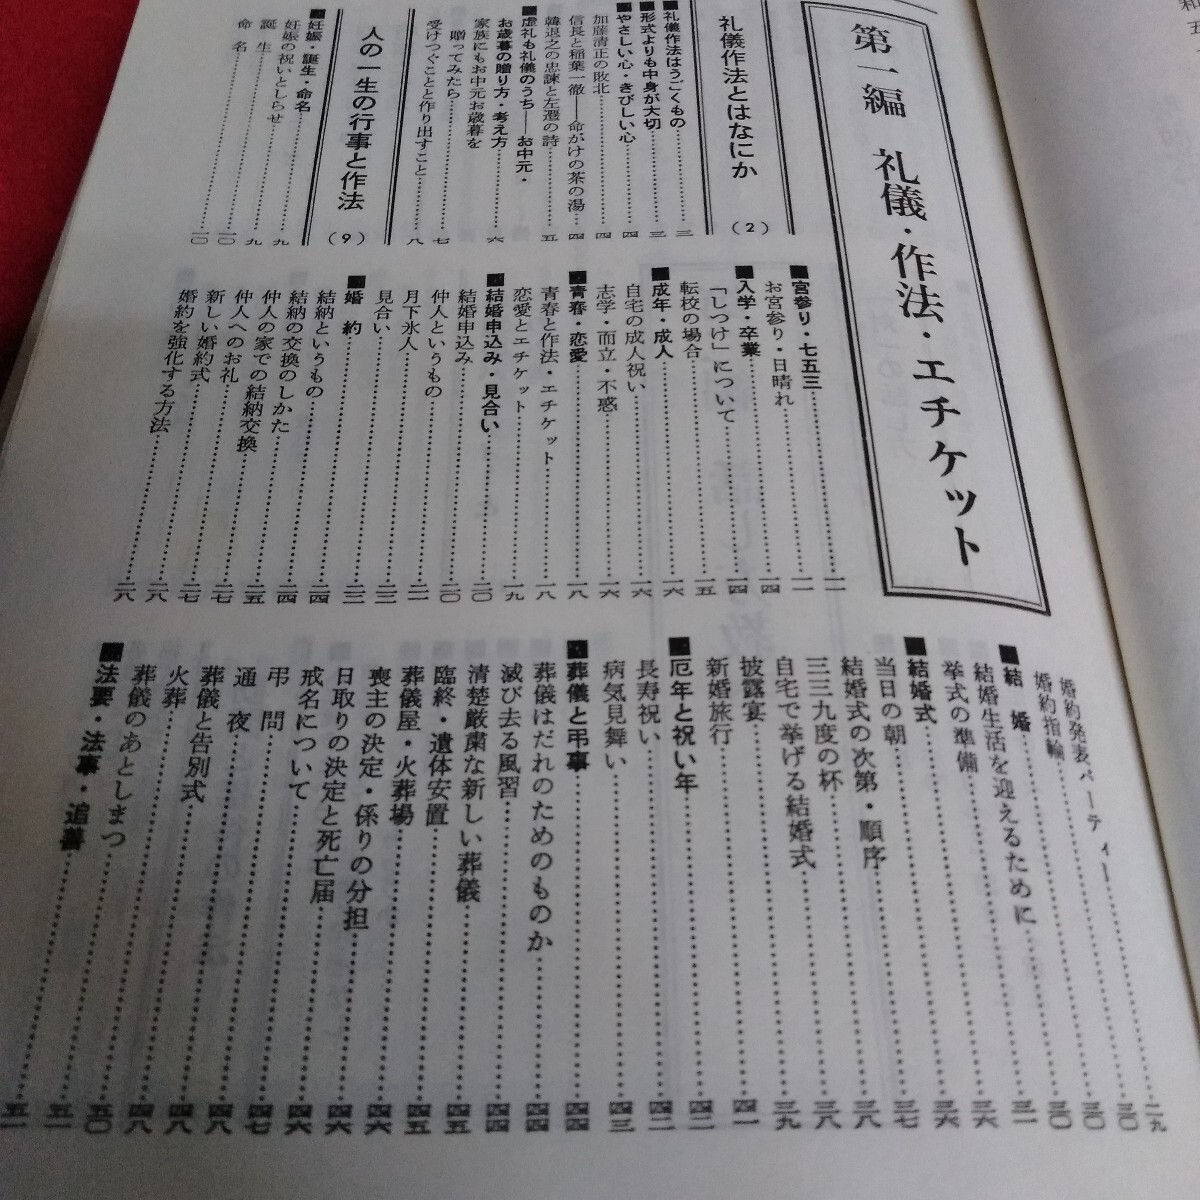 第一編　礼儀・作法・エチケット
礼儀作法とはなにか（2）
■礼儀作法はうごくもの……三
■形式よりも中身が大切……三
■やさしい心・きびしい心……四
加藤清正の敗北……四
信長と稲葉一徹――命がけの茶の湯……四
韓退之の忠諫と左遷の詩……五
■虚礼も礼儀のうち――お中元・
お歳暮の贈り方・考え方……六
家族にもお中元お歳暮を
贈ってみたら……七
受けつぐことと作り出すこと……八
人の一生の行事と作法（9）
■妊娠・誕生・命名
妊娠の祝いとしらせ……九
誕　生……九
命　名……一〇
……一〇
■宮参り・七五三……一一
お宮参り・日晴れ……一一
■入学・卒業……一四
「しつけ」について……一四
転校の場合……一五
■成年・成人……一六
自宅の成人祝い……一六
志学・而立・不惑……一六
■青春・恋愛……一八
青春と作法・エチケット……一八
恋愛とエチケット……一九
■結婚申込み・見合い……二〇
結婚申込み……二〇
仲人というもの……二一
月下氷人……二二
見合い……二三
■婚　約……二三
結納というもの……二四
結納の交換のしかた……二四
仲人の家での結納交換……二五
仲人へのお礼……二七
新しい婚約式……二七
婚約を強化する方法……二八
……二八
婚約発表パーティー……二九
婚約指輪……三〇
■結　婚……三〇
結婚生活を迎えるために……三〇
挙式の準備……三一
■結婚式……三六
当日の朝……三六
結婚式の次第・順序……三七
三三九度の杯……三八
自宅で挙げる結婚式……三八
披露宴……三九
新婚旅行……四一
■厄年と祝い年……四二
長寿祝い……四二
病気見舞い……四三
■葬儀と弔事……四四
葬儀はだれのためのものか……四四
滅び去る風習……四四
清楚厳粛な新しい葬儀……四四
臨終・遺体安置……四五
葬儀屋・火葬場……四五
喪主の決定・係りの分担……四六
日取りの決定と死亡届……四六
戒名について……四六
弔　問……四七
通　夜……四八
葬儀と告別式……四八
火葬……四八
葬儀のあとしまつ……五〇
■法要・法事・追善……五一
……五一